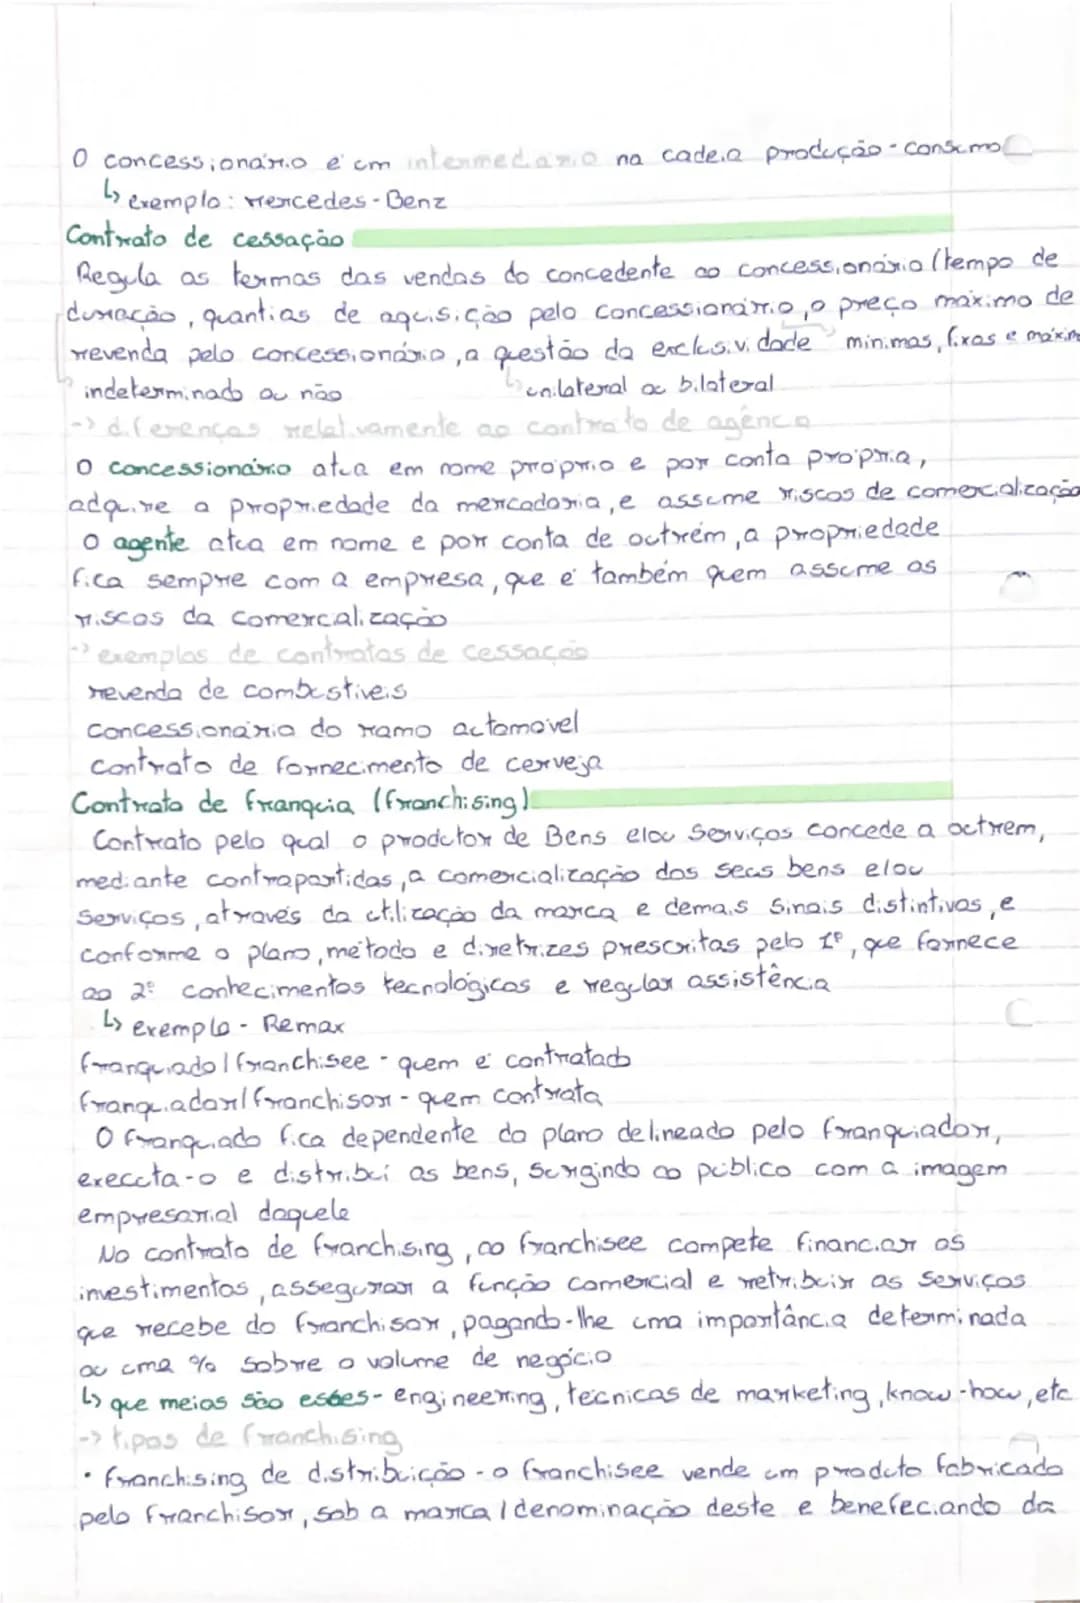 O concessionário é um intermediário na cadeia produção - consumo
↳ exemplo: Mercedes - Benz
Contrato de cessação
Regula os termos das vendas do concedente ao concessionário (tempo de
duração, quantias de aquisição pelo concessionário, o preço máximo de
revenda pelo concessionário, a questão da exclusividade minimas, fixas e máxim
indeterminado ou não ↳ unilateral ou bilateral
-> diferenças relativamente ao contrato de agência
O concessionário atua em nome próprio e por conta própria,
adquire a propriedade da mercadoria, e assume riscos de comercialização
O agente atua em nome e por conta de outrém, a propriedade
fica sempre com a empresa, que é também quem assume os
riscos da comercalização
-> exemplos de contratos de cessação
revenda de combustiveis
concessionária do ramo automóvel
contrato de fornecimento de cerveja
Contrato de franquia (franchising)
Contrato pelo qual o produtor de Bens e/ou Serviços concede a outrem,
mediante contrapartidas, a comercialização dos seus bens e/ou
serviços, através da utilização da marca e demais sinais distintivos, e
conforme o plano, método e diretrizes prescritas pelo 1º, que fornece
ao 2º conhecimentos tecnológicos e regular assistência
↳ exemplo - Remax
franquiado / franchisee - quem é contratado
franquiador / franchisor - quem contrata
O franquiado fica dependente do plano delineado pelo franquiador,
executa-o e distribui os bens, surgindo ao público com a imagem
empresarial daquele
No contrato de franchising, ao franchisee compete financiar os
investimentos, assegurar a função comercial e retribuir os serviços
que recebe do franchisor, pagando-lhe uma importância determinada
ou uma % sobre o volume de negócio
↳ que meios são esses - engineering, técnicas de marketing, know-how, etc
-> tipos de franchising
• franchising de distribuição - o franchisee vende um produto fabricado
pelo franchisor, sob a marca / denominação deste e benefeciando da